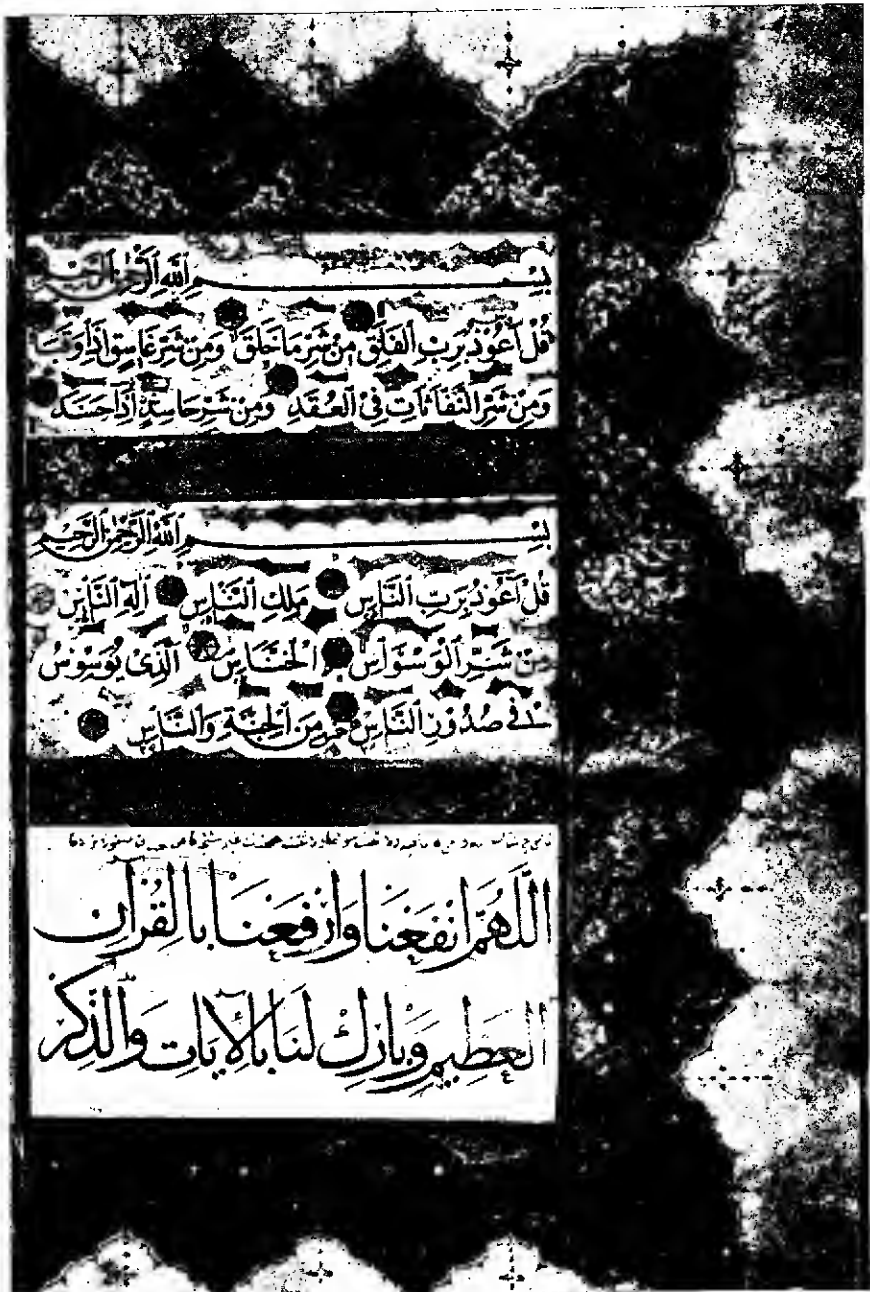 بِسْمِ اللَّهِ الرَّحْمَٰنِ الرَّحِيمِ
قُلْ أَعُوذُ بِرَبِّ الْفَلَقِ مِنْ شَرِّ مَا خَلَقَ وَمِنْ شَرِّ غَاسِقٍ إِذَا وَقَبَ
وَمِنْ شَرِّ النَّفَّاثَاتِ فِي الْعُقَدِ وَمِنْ شَرِّ حَاسِدٍ إِذَا حَسَدَ
بِسْمِ اللَّهِ الرَّحْمَٰنِ الرَّحِيمِ
قُلْ أَعُوذُ بِرَبِّ النَّاسِ مَلِكِ النَّاسِ إِلَٰهِ النَّاسِ
مِنْ شَرِّ الْوَسْوَاسِ الْخَنَّاسِ الَّذِي يُوَسْوِسُ
فِي صُدُورِ النَّاسِ مِنَ الْجِنَّةِ وَالنَّاسِ
اللَّهُمَّ انْفَعْنَا وَارْفَعْنَا بِالْقُرْآنِ
الْعَظِيمِ وَبَارِكْ لَنَا بِالْآيَاتِ وَالذِّكْرِ